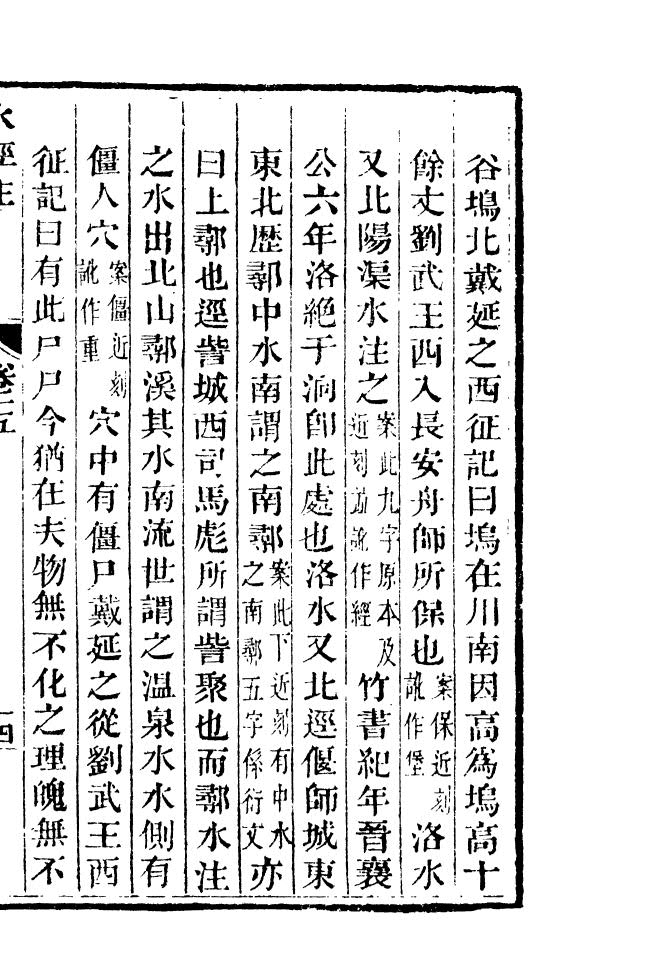 谷塢北戴延之西征記曰塢在川南因高爲塢高十
餘丈劉武王西入長安舟師所保也案保近刻訛作堡洛水
又北陽渠水注之案此九字原本及近刻並訛作經竹書紀年晉襄
公六年洛絕于泂卽此處也洛水又北逕偃師城東
東北歷鄩中水南謂之南鄩案此下近刻有中水之南鄩五字係衍文亦
曰上鄩也逕訾城西司馬彪所謂訾聚也而鄩水注
之水出北山鄩溪其水南流世謂之温泉水水側有
僵人穴案僵近刻訛作重穴中有僵尸戴延之從劉武王西
征記曰有此尸尸今猶在夫物無不化之理魄無不
水經注 卷十五 十四